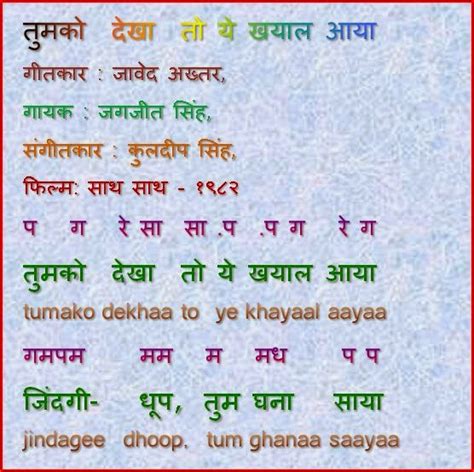 तुमको देखा तो ये खयाल आया
गीतकार : जावेद अख्तर,
गायक : जगजीत सिंह,
संगीतकार : कुलदीप सिंह,
फिल्म: साथ साथ - १९८२
प ग रे सा सा .प .प ग रे ग
तुमको देखा तो ये खयाल आया
tumako dekhaa to ye khayaal aayaa
गमपम मम म मध प प
जिंदगी- धूप, तुम घना साया
jindagee dhoop, tum ghanaa saayaa